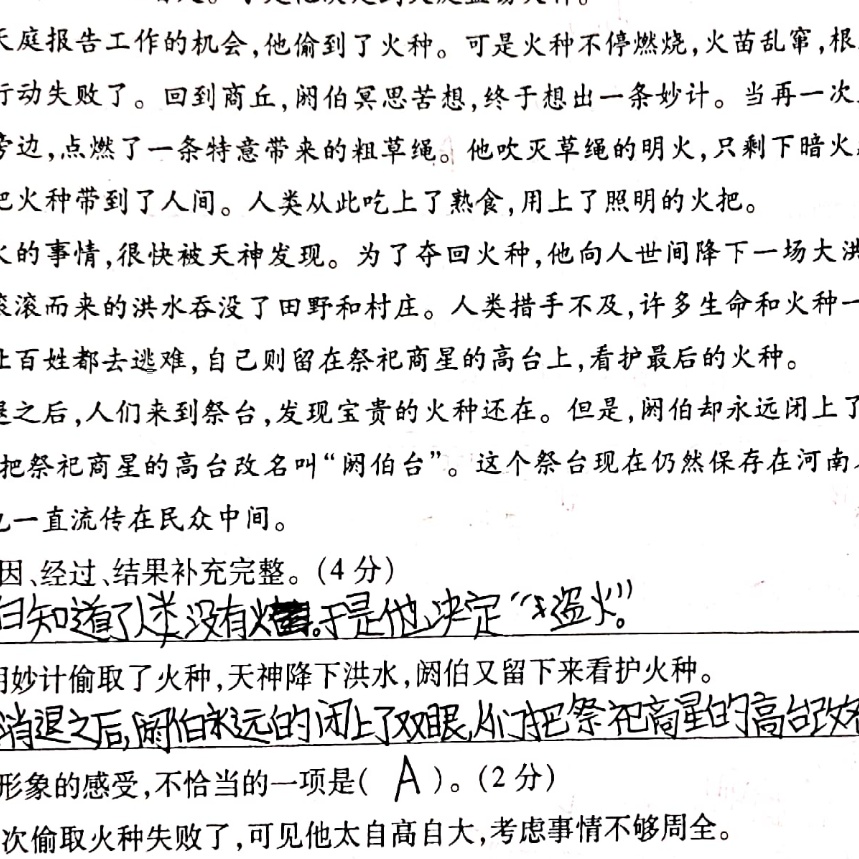 天庭报告工作的机会,他偷到了火种。可是火种不停燃烧,火苗乱窜,根
行动失败了。回到商丘,阏伯冥思苦想,终于想出一条妙计。当再一次
旁边,点燃了一条特意带来的粗草绳。他吹灭草绳的明火,只剩下暗火
把火种带到了人间。人类从此吃上了熟食,用上了照明的火把。
火的事情,很快被天神发现。为了夺回火种,他向人世间降下一场大洪
滚滚而来的洪水吞没了田野和村庄。人类措手不及,许多生命和火种一
让百姓都去逃难,自己则留在祭祀商星的高台上,看护最后的火种。
退之后,人们来到祭台,发现宝贵的火种还在。但是,阏伯却永远闭上了
把祭祀商星的高台改名叫“阏伯台”。这个祭台现在仍然保存在河南
一直流传在民众中间。
因、经过、结果补充完整。(4分)
伯知道了人类没有火。于是他决定“盗火”。
用妙计偷取了火种,天神降下洪水,阏伯又留下来看护火种。
消退之后,阏伯永远的闭上了双眼,人们把祭祀商星的高台改
形象的感受,不恰当的一项是( A )。(2分)
次偷取火种失败了,可见他太自高自大,考虑事情不够周全。